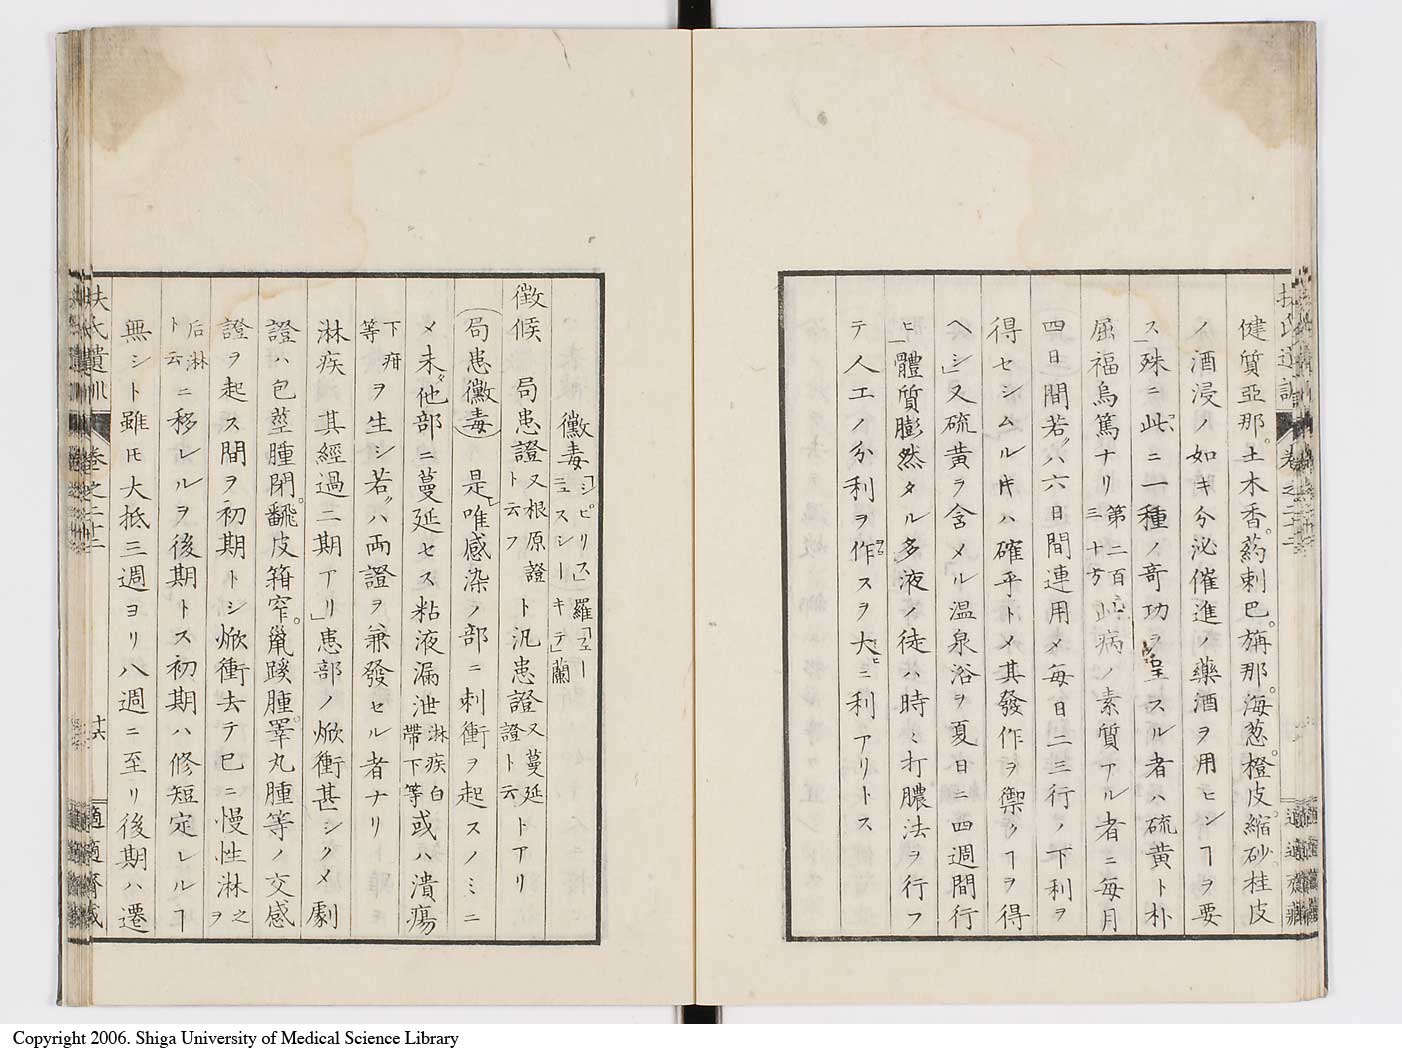 健質亞那。土木香。葯剌巴。旃那。海葱。橙皮。縮砂。桂皮
ノ酒浸ノ如キ分泌催進ノ藥酒ヲ用ヒシヿヲ要
ス」殊ニ此ニ一種ノ竒功ヲ呈スル者ハ硫黄ト朴
屈福烏篤ナリ第二百三十方此病ノ素質アル者ニ毎月
四日間若クハ六日間連用メ毎日二三行ノ下利ヲ
得セシムル片ハ確乎トメ其發作ヲ禦クヿヲ得
ヘシ」又硫黄ヲ含メル温泉浴ヲ夏日ニ四週間行
ヒ」體質膨然タル多液ノ徒ハ時々打膿法ヲ行フ
テ人工ノ分利ヲ作スヲ大ヒニ利アリトス
扶氏遺訓 巻之二十二 十六 適適齋藏
黴毒「シピリス」羅「フェニュスシーキテ」蘭
徴候 局患證又根原證ト云フト汎患證又蔓延證ト云トアリ
局患黴毒 是レ唯感染ノ部ニ刺衝ヲ起スノミニ
メ未タ他部ニ蔓延セス粘液漏泄淋疾白帶下等或ハ潰瘍
下疳等ヲ生シ若クハ両證ヲ兼發セル者ナリ
淋疾 其經過二期アリ」患部ノ焮衝甚シクメ劇
證ハ包莖腫閉。飜皮箝窄。鼠蹊腫。睪丸腫等ノ交感
證ヲ起ス間ヲ初期トシ焮衝去テ已ニ慢性淋之ヲ
后淋ト云ニ移レルヲ後期トス初期ハ修短定レルヿ
無シト雖𪜈大抵三週ヨリ八週ニ至リ後期ハ遷
Copyright 2006. Shiga University of Medical Science Library